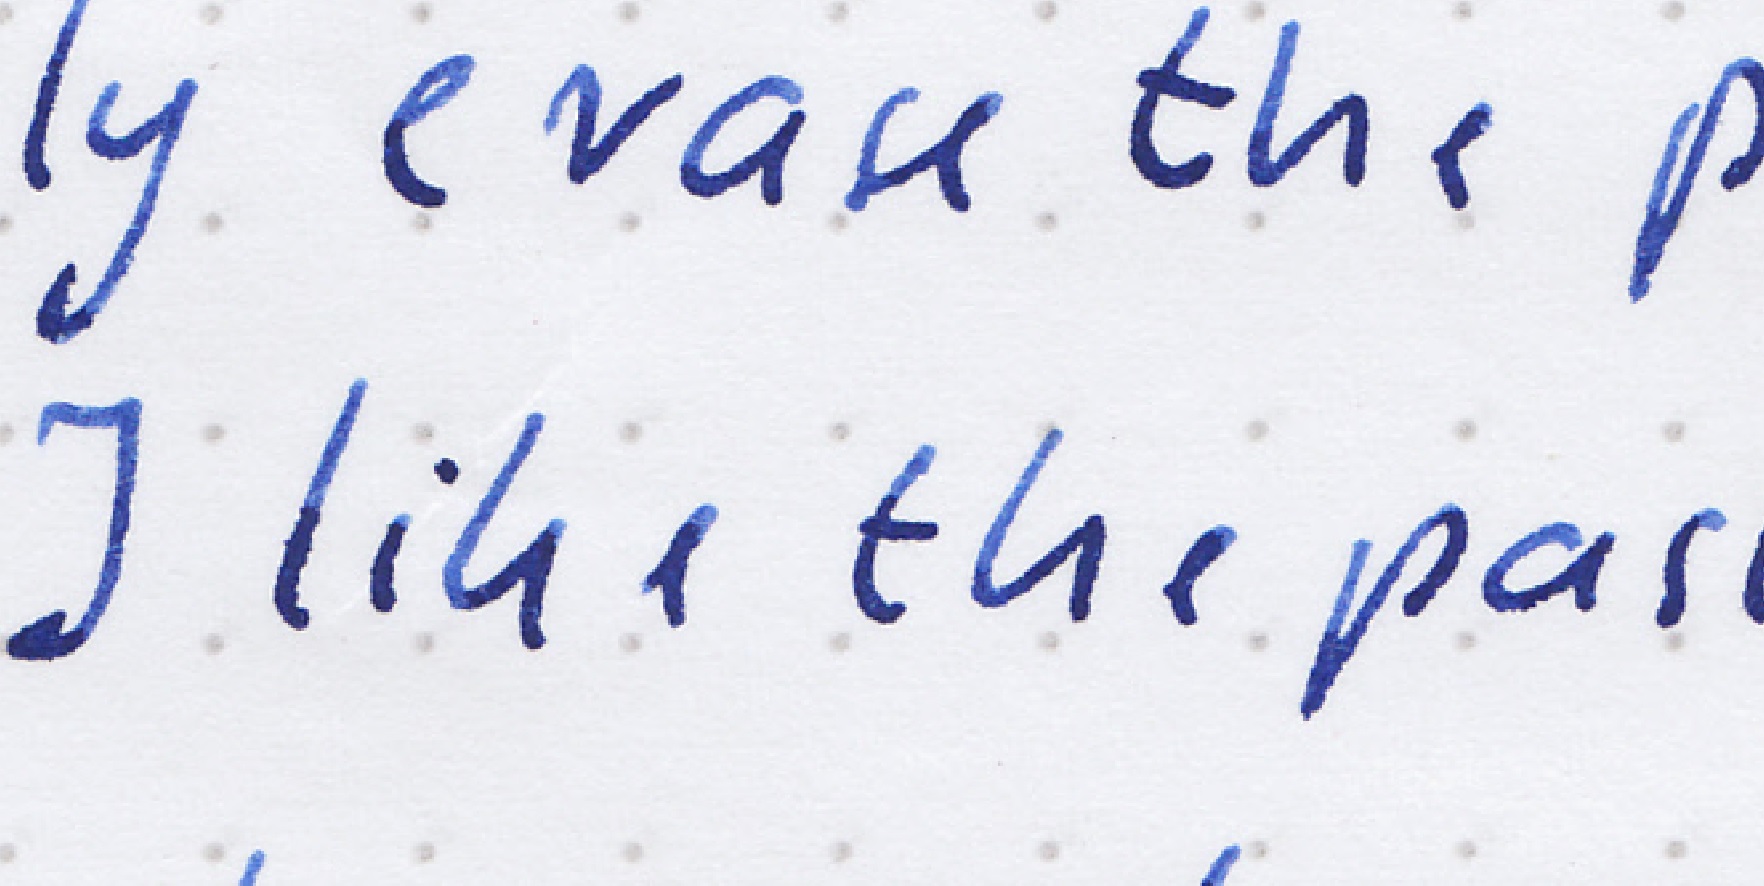 ly evan the p
I like the pas